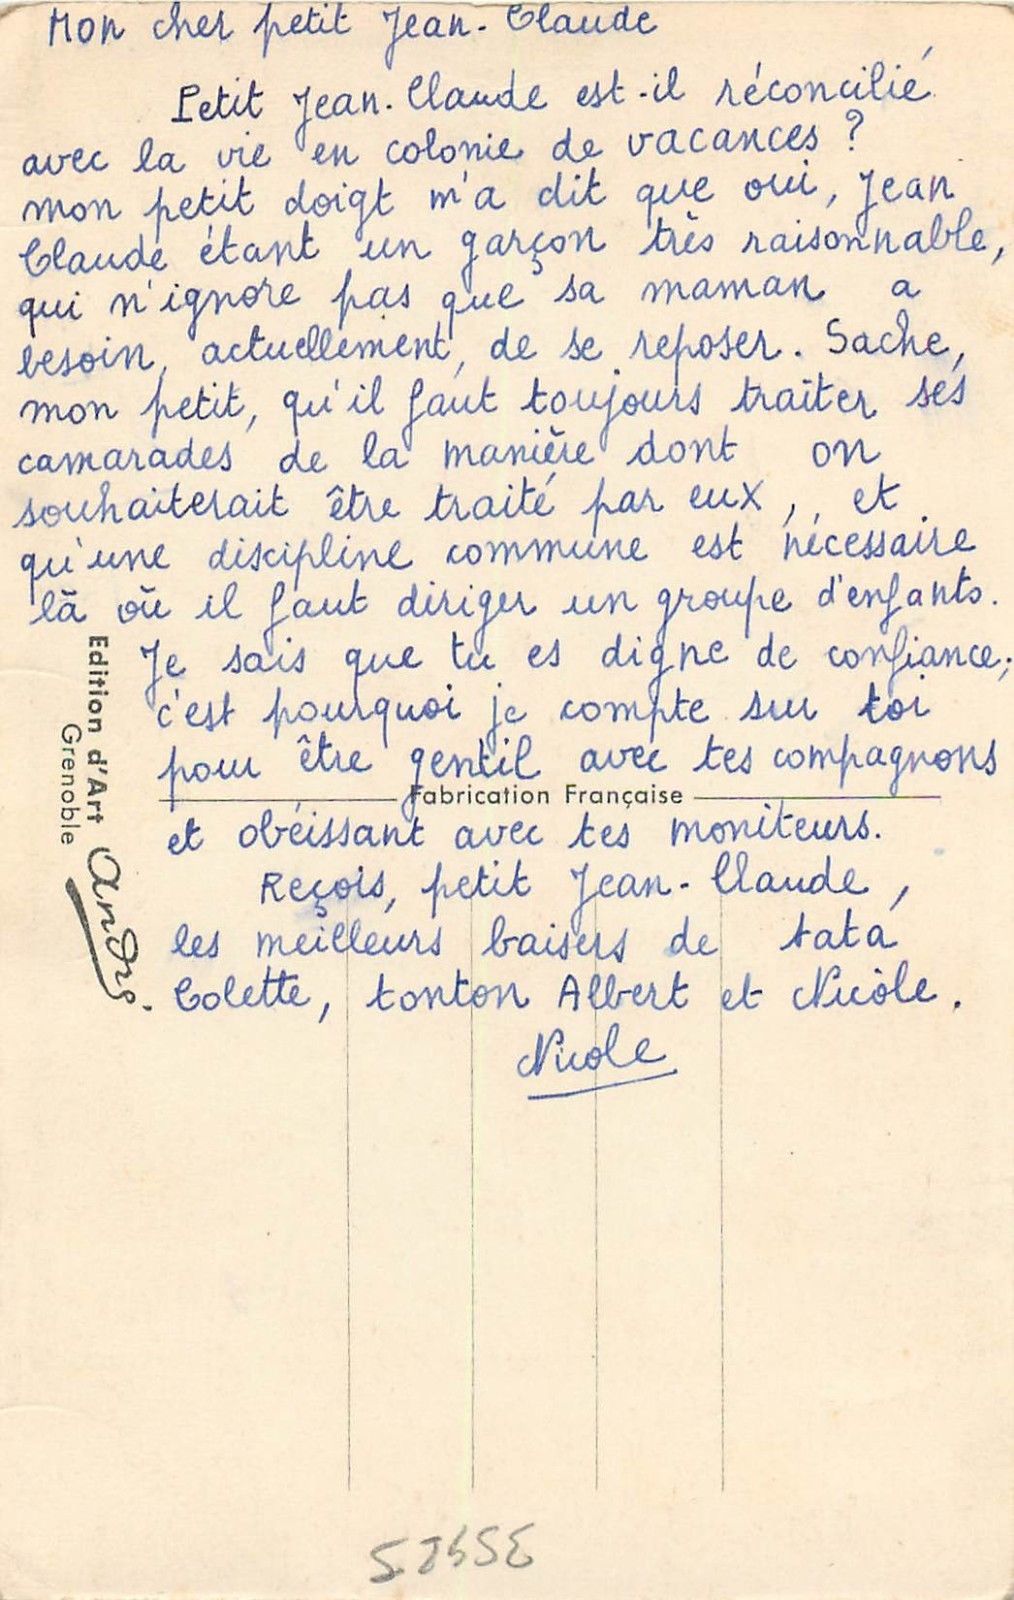 Mon cher petit Jean-Claude
Petit Jean-Claude est-il réconcilié
avec la vie en colonie de vacances ?
mon petit doigt m'a dit que oui, Jean
Claude étant un garçon très raisonnable,
qui n'ignore pas que sa maman a
besoin, actuellement, de se reposer. Sache,
mon petit, qu'il faut toujours traiter ses
camarades de la manière dont on
souhaiterait être traité par eux, et
qu'une discipline commune est nécessaire
là où il faut diriger un groupe d'enfants.
Je sais que tu es digne de confiance;
c'est pourquoi je compte sur toi
pour être gentil avec tes compagnons
Fabrication Française
et obéissant avec tes moniteurs.
Reçois, petit Jean-Claude,
les meilleurs baisers de tata
Colette, tonton Albert et Nicole.
Nicole
Edition d'Art
Grenoble
André